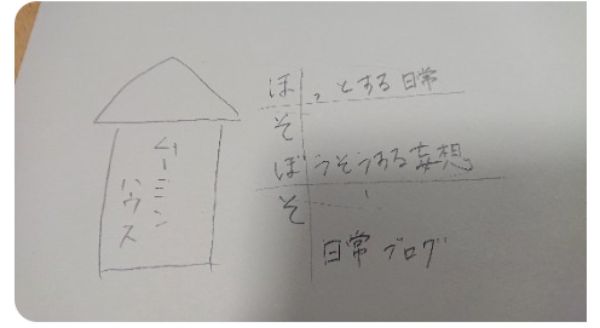 ムーミン
ハウス
ほっとする日常
そ
ぼうそうする妄想
そ
日常ブログ